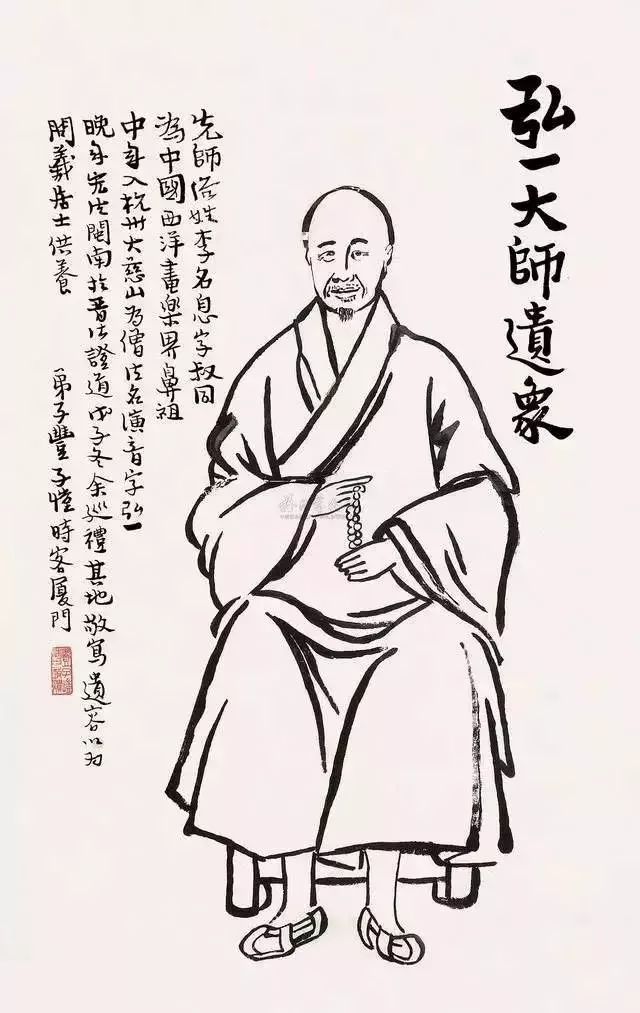 弘一大師遺象
先師俗姓李名息字叔同
為中國西洋畫樂界鼻祖
中年入杭州大慈山為僧法名演音字弘一
晚年宏法閩南於晋江證道戊子冬余巡禮其地敬寫遺容以为
開義居士供養
弟子豐子愷時客厦門